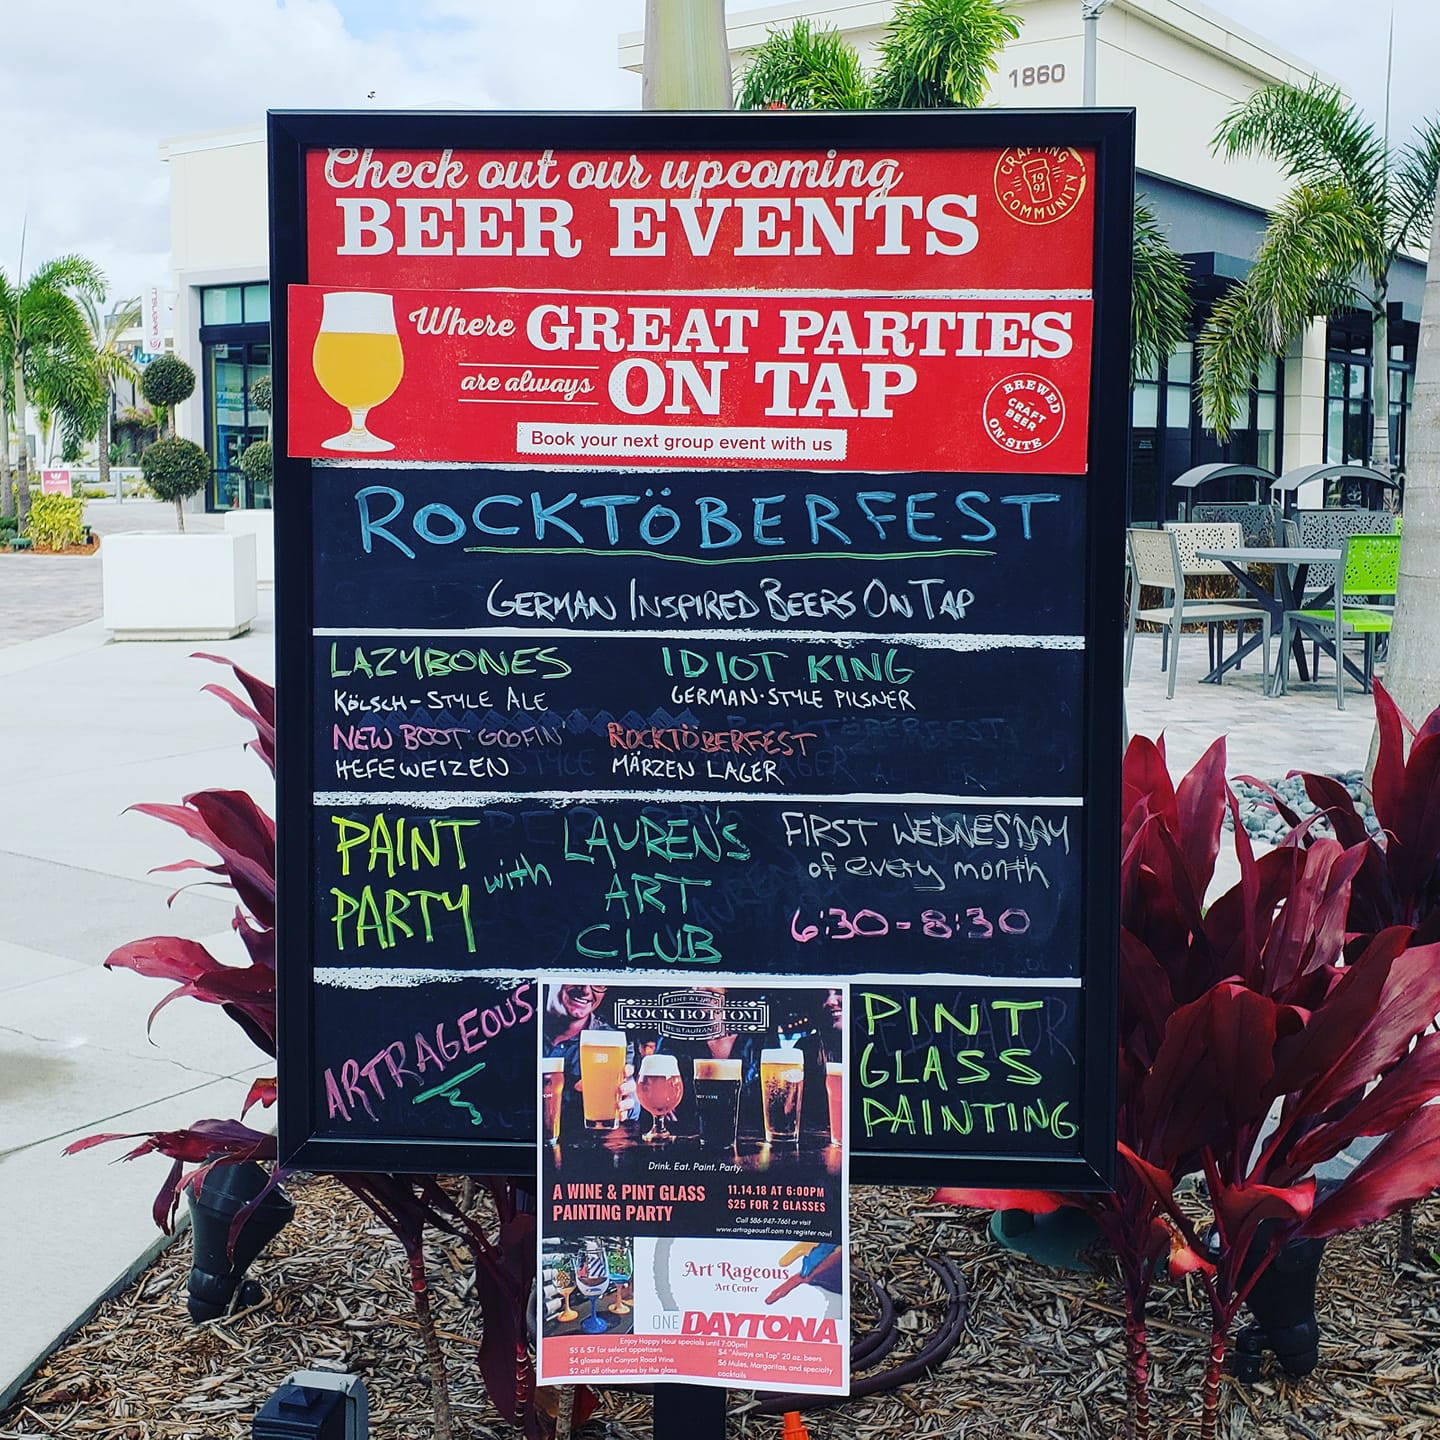 1860
Check out our upcoming
BEER EVENTS
CRAFTING
1991
COMMUNITY
Where GREAT PARTIES
are always ON TAP
Book your next group event with us
BREWED
CRAFT
BEER
ON-SITE
ROCKTÖBERFEST
GERMAN INSPIRED BEERS ON TAP
LAZYBONES
KÖLSCH-STYLE ALE
IDIOT KING
GERMAN-STYLE PILSNER
NEW BOOT GOOFIN'
HEFEWEIZEN
ROCKTÖBERFEST
MÄRZEN LAGER
PAINT
PARTY
with
LAUREN'S
ART
CLUB
FIRST WEDNESDAY
of every month
6:30-8:30
ARTRAGEOUS
ROCK BOTTOM
RESTAURANT
Drink. Eat. Paint. Party.
A WINE & PINT GLASS
PAINTING PARTY
11.14.18 AT 6:00PM
$25 FOR 2 GLASSES
Call 586-947-7661 or visit
www.artrageousfl.com to register now!
Art Rageous
Art Center
ONE DAYTONA
Enjoy Happy Hour specials until 7:00pm!
$5 & $7 for select appetizers
$4 glasses of Canyon Road Wine
$2 off all other wines by the glass
$4 "Always on Tap" 20 oz. beers
$6 Mules, Margaritas, and specialty
cocktails
PINT
GLASS
PAINTING